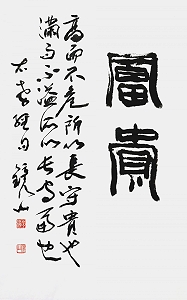 富貴
高而不危所以長守貴也
滿而不溢所以長守富也
右孝經句 鏡山